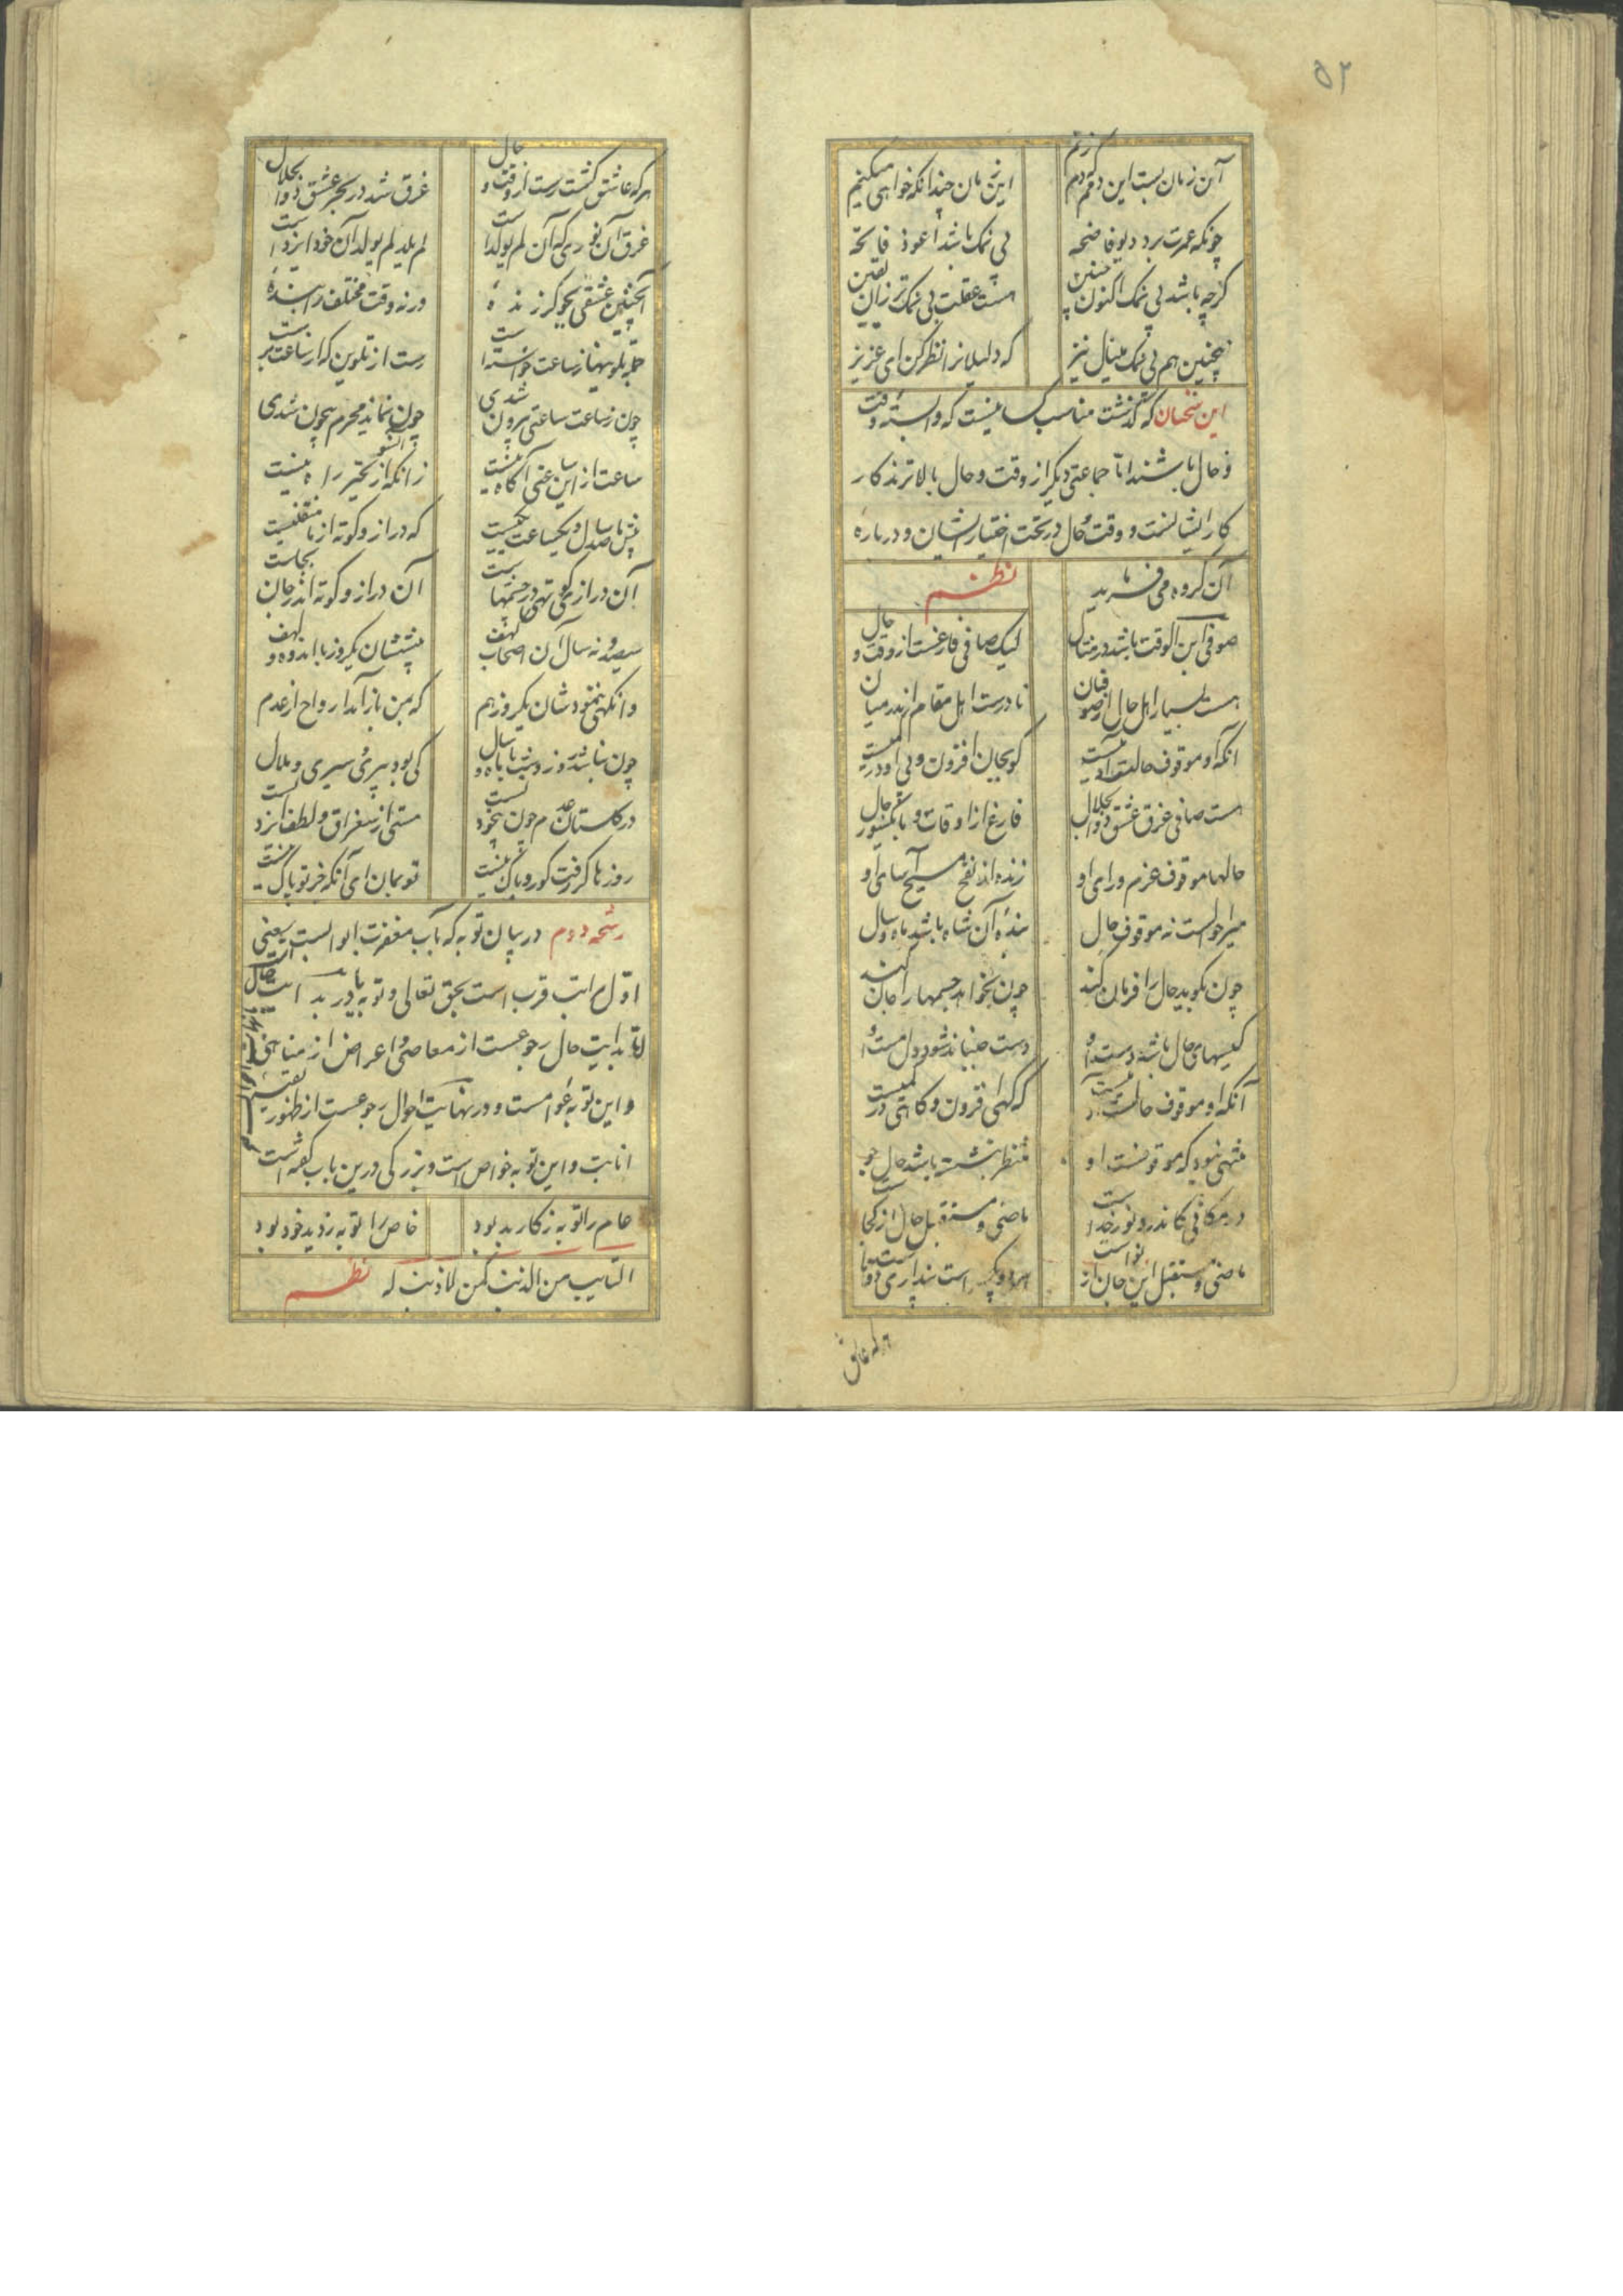 ۵۲
آن زمان بست این دم که دم زنم
این زمان چندانکه خواهی میکنیم
چونکه عمرت برد دیو فاضحه
بی نمک باشد اعوذ فاتحه
گرچه باشد بی نمک اکنون چنین
هست غفلت بی نمک تر زان یقین
همچنین هم بی نمک مینال نیز
که ذلیلانرا نظر کن ای عزیز
این سخنان که گذشت مناسب کسانیست که وابسته وقت
و حال باشند اما جماعتی دیگر از وقت و حال بالاترند کار
کار ایشانست و وقت و حال در تحت اختیار ایشان و درباره
آن گروه می فرماید
نظم
صوفی ابن الوقت باشد در مثال
لیک صافی فارغست از وقت و حال
هست بسیار اهل حال از صوفیان
نادرست اهل مقام اندر میان
آنکه او موقوف حالست آدمیست
کو بجان افزون و بی او در کمیست
هست صافی غرق عشق ذوالجلال
فارغ از اوقات و با کشور حال
حالها موقوف عزم و رای او
زنده از نفخ مسیح آسای او
میر حالست نه موقوف حال
بنده آن شاه باشد ماه و سال
چون بگوید حال را فرمان کند
چون بخواهد جسمها را جان کند
کیمیای حال باشد دست او
دست جنباند شود دل مست او
آنکه او موقوف حالست آدمیست
که گهی افزون و گاهی در کمیست
منتهی نبود که موقوفست او
منتظر بنشسته باشد حال جو
در مکانی کاندرو نور خداست
ماضی و مستقبل حال از کجاست
ماضی و مستقبل این جان از تواست
هر دو یک چیز است نپداری دوتاست
هر که عاشق
هر که عاشق گشت رست از وقت و حال
غرق شد در بحر عشق ذوالجلال
غرق آن نوری که آن لم یولدست
لم یلد لم یولد آن خود ایزدست
آنچنین عشقی بجو گر زنده
ورنه وقت مختلف را بنده
جمله تلوینها ز ساعت خواستست
رست از تلوین که از ساعت برست
چون ز ساعت ساعتی بیرون شدی
چون نماند محرم بیچون شدی
ساعت از این ساعتی آگاه نیست
زانکه آنسو از تحیر راه نیست
پیش ما صد سال و یکساعت یکیست
که دراز و کوته از ما منفکیست
آن دراز و کوتهی در جسمهاست
آن دراز و کوته اندر جان کجاست
سیصد و نه سال آن اصحاب کهف
پیششان یکروز با اندوه و لهف
وانگهی ننمودشان یکروز هم
که به تن باز آمد ارواح از عدم
چون نباشد روز و شب با ماه و سال
کی بود پیری و سیری و ملال
در گلستان عدم چون بیخودیست
مستی از سغراق و لطف ایزدیست
روزها گر رفت گو رو باک نیست
تو بمان ای آنکه جز تو پاک نیست
رشحه دوم در بیان توبه که باب مغفرت ابوابست یعنی
اول مراتب قرب است بحق تعالی و توبه یا در بدایت حال
اما بدایت حال رجوعست از معاصی و اعراض از مناهی
و این توبه عوامست و در نهایت احوال رجوعست از ظهور
انابت و این توبه خواص است و بزرکی درین باب گفته است
عام را توبه ز کار بد بود
خاص را توبه ز دید خود بود
التایب من الذنب کمن لا ذنب له نظم